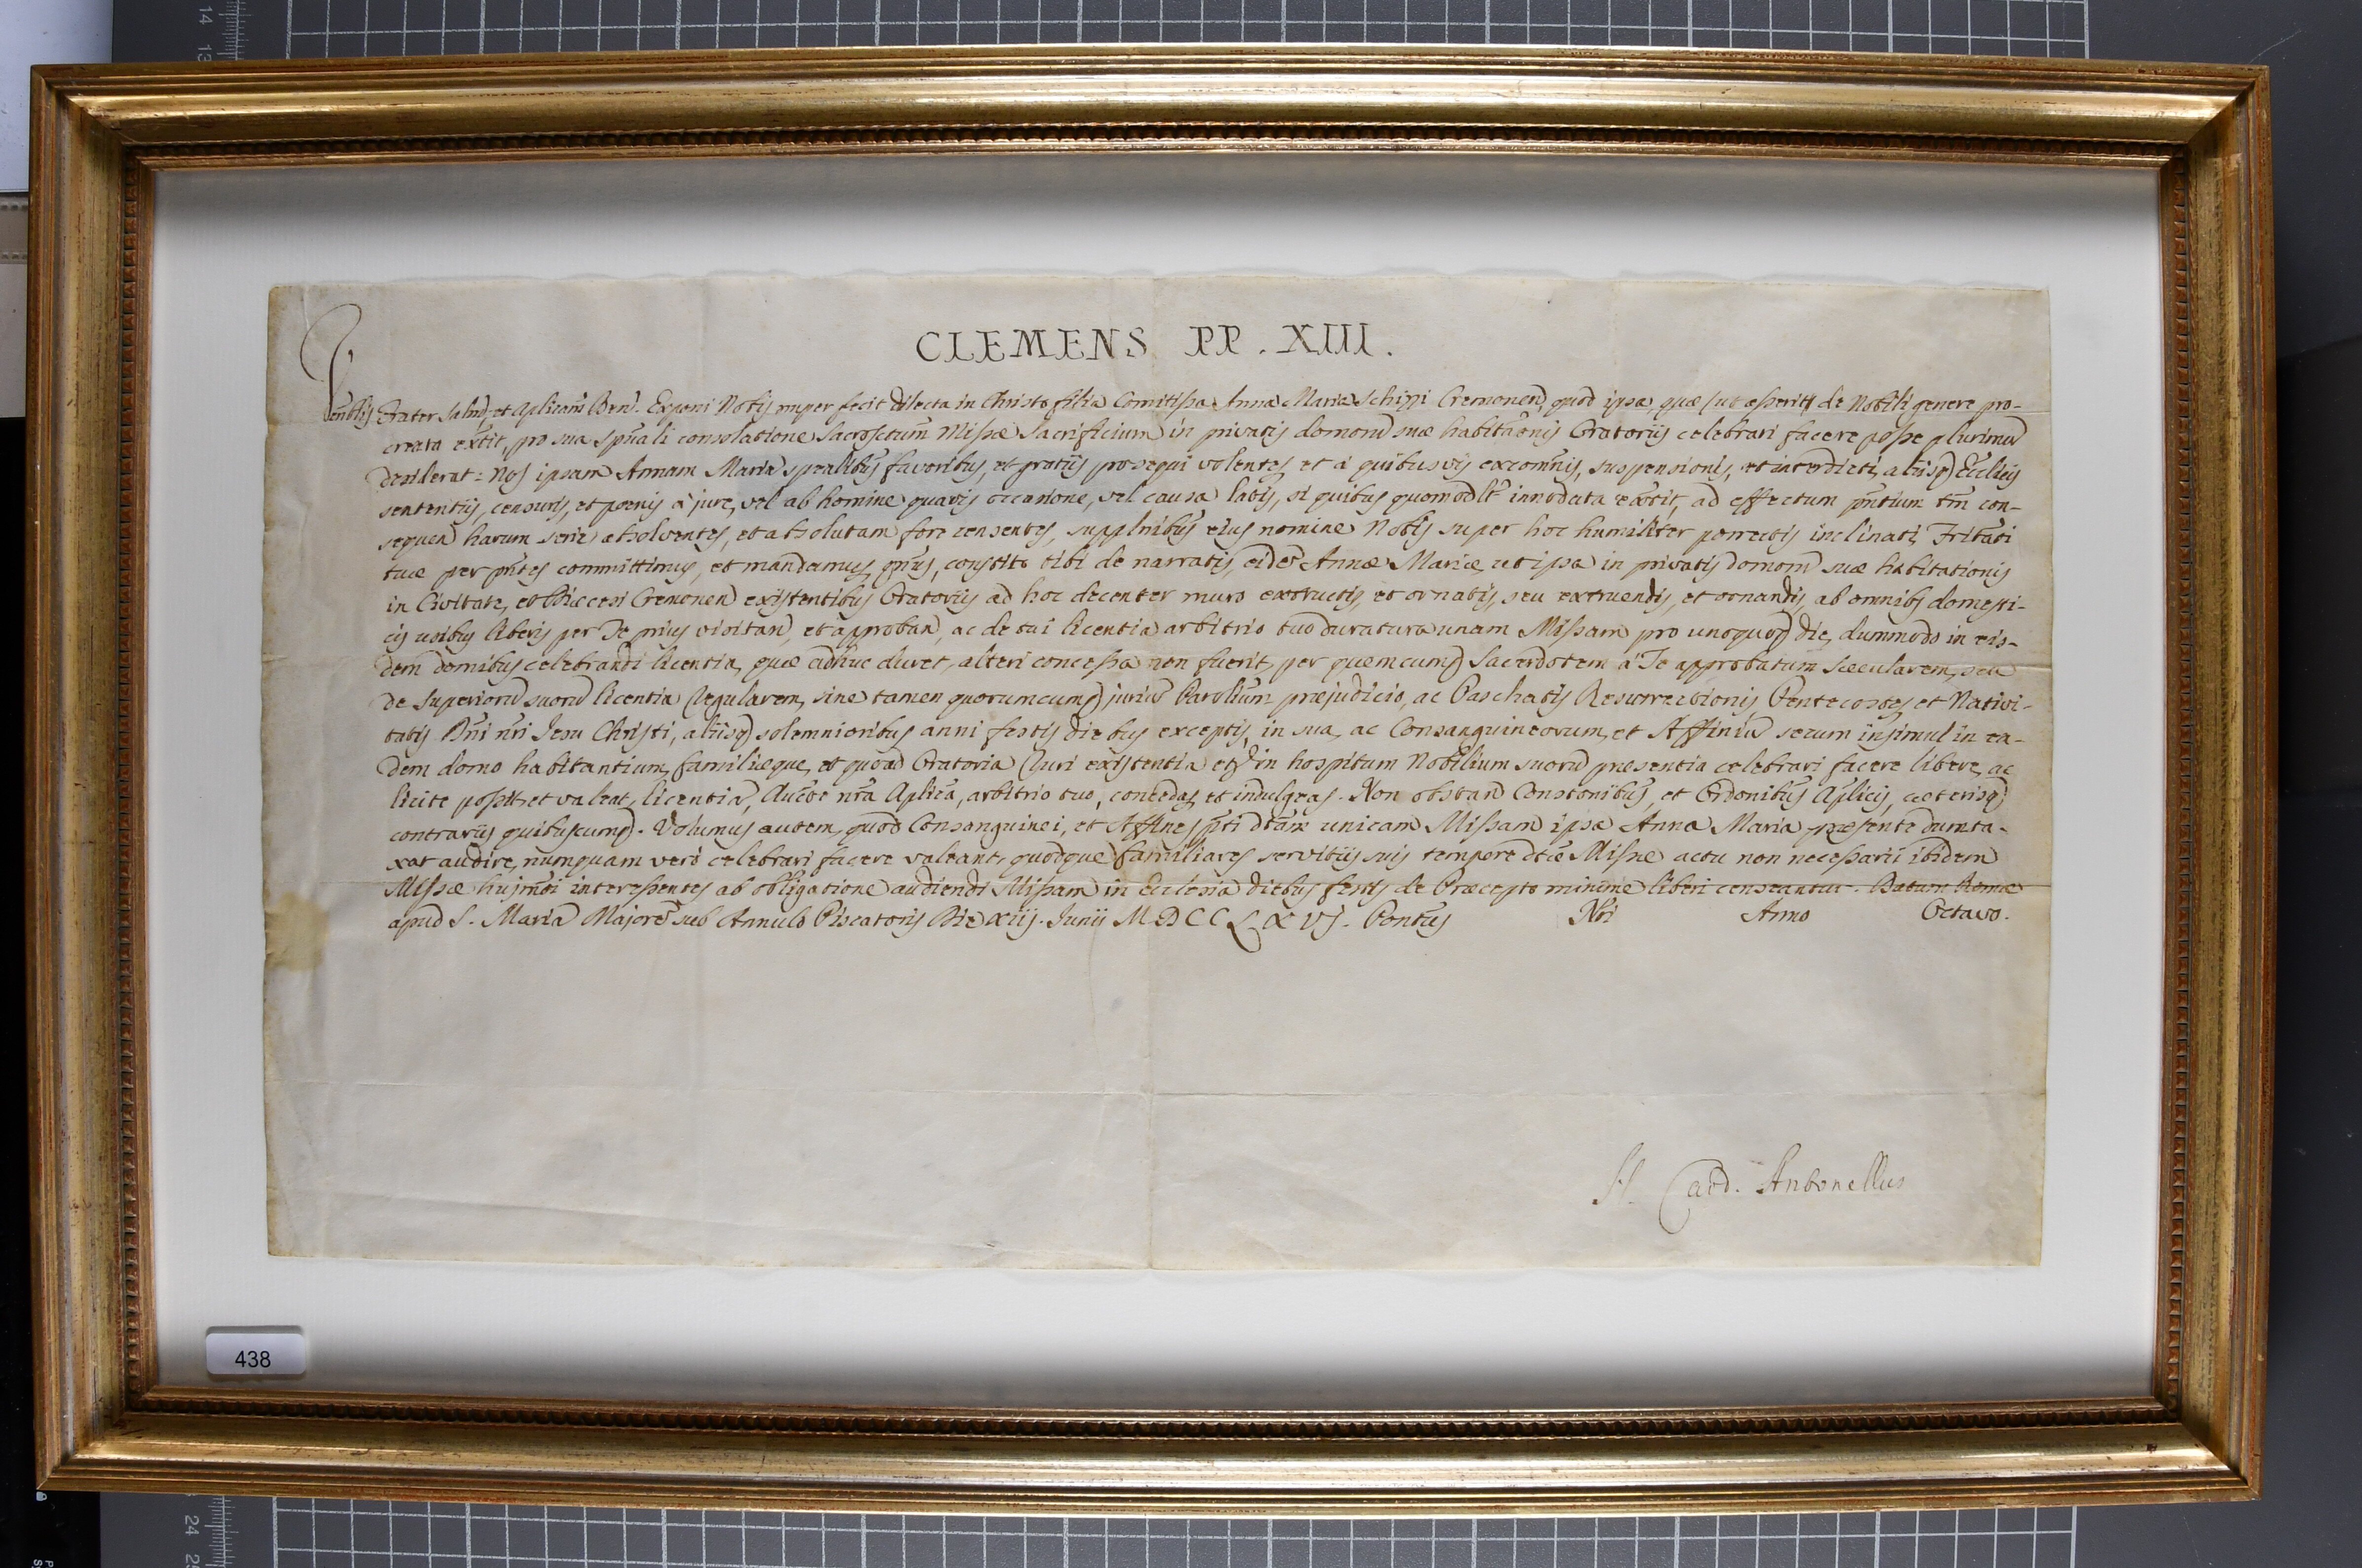 14
13
CLEMENS PP. XIII.
Venblis Frater Salm̃, et Aplicam̃ Ben̄. Exponi Nobis nuper fecit dilecta in Christo filia Comitissa Anna Maria Schizzi Cremonen, quod ipsa, quæ (ut asserit) de Nobili genere pro-
creata extit, pro sua spũali consolatione Sacrosctum̃ Missæ Sacrificium in privatis domorũ suæ habitaõnis Oratoriis celebrari facere posse plurimũ
desiderat: Nos ipsam Annam Mariã spealibus̃ favoribus, et gratiis prosequi volentes, et à quibusvis excomñis, suspensionis, et interdicti, aliisq̃ Ecclicis
sententiis, censuris, et pœnis à jure, vel ab homine quavis occasione, vel causa latis, si quibus quomodlt̃ innodata extit, ad effectum pñtium tm̃ con-
sequen harum serie absolventes, et absolutam fore censentes, supplñibus̃ ejus nomine Nobis super hoc humiliter porrectis inclinati, Frltati
tuæ per pñtes committimus, et mandamus, qñus, constito tibi de narratis, eidẽ Annæ Mariæ, ut ipsa in privatis domorũ suæ habitationis
in Civitate, et Diœcesi Cremonen existentibus Oratoriis ad hoc decenter muro extructis, et ornatis, seu extruendis, et ornandis, ab omnibs domesti-
cis usibus liberis per Te prius visitan, et approban, ac de tui licentia arbitrio tuo duratura unam Missam pro unoquoq̃ die, dummodo in eis-
dem domibus celebrandi licentia, quæ adhuc duret, alteri concessa non fuerit, per quemcumq̃ Sacerdotem à Te approbatum Sæcularem, seu
de Superiorũ suorũ licentia Regularem, sine tamen quorumcumq̃ juriũ Parolium̃ præjudicio, ac Paschatis Resurrectionis, Pentecostes, et Nativi-
tatis Dñi nr̃i Jesu Christi, aliisq̃ solemnioribus anni festis diebus exceptis, in sua, ac Consanguineorum, et Affiniũ secum insimul in ea-
dem domo habitantium, familiæque, et quoad Oratoria Ruri existentia et̃ in hospitum Nobilium suorũ præsentia celebrari facere libere, ac
licite possit, et valeat, licentiã, Auctẽ nr̃a Aplica, arbitrio tuo, concedas, et indulgeas. Non obstan Constonibus̃, et Ordonibus̃ Aplicis, cæterisq̃
contrariis quibuscumq̃. Volumus autem, quod Consanguinei, et Affines pti dtam̃ unicam Missam ipsa Anna Maria præsente dumta-
xat audire, numquam verò celebrari facere valeant, quodque familiares servitiis suis tempore dtæ̃ Missæ actu non necessarii ibidem
Missæ hujm̃di interessentes ab obligatione audiendi Missam in Ecclesia diebus festis de Præcepto minime liberi censeantur. Datum Romæ
apud S. Mariã Majorẽ sub Annulo Piscatoris Die xiij. Junii MDCCLXVJ. Pontũs Nri Anno Octavo.
N. Card. Antonellus
438
24